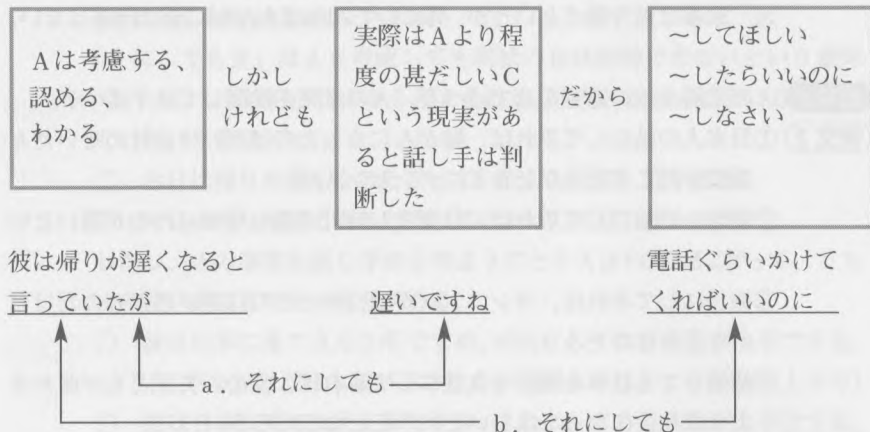 Aは考慮する、
認める、
わかる
しかし
けれども
実際はAより程
度の甚だしいC
という現実があ
ると話し手は判
断した
だから
~してほしい
~したらいいのに
~しなさい
彼は帰りが遅くなると
言っていたが
遅いですね
電話ぐらいかけて
くればいいのに
a．それにしても
b．それにしても